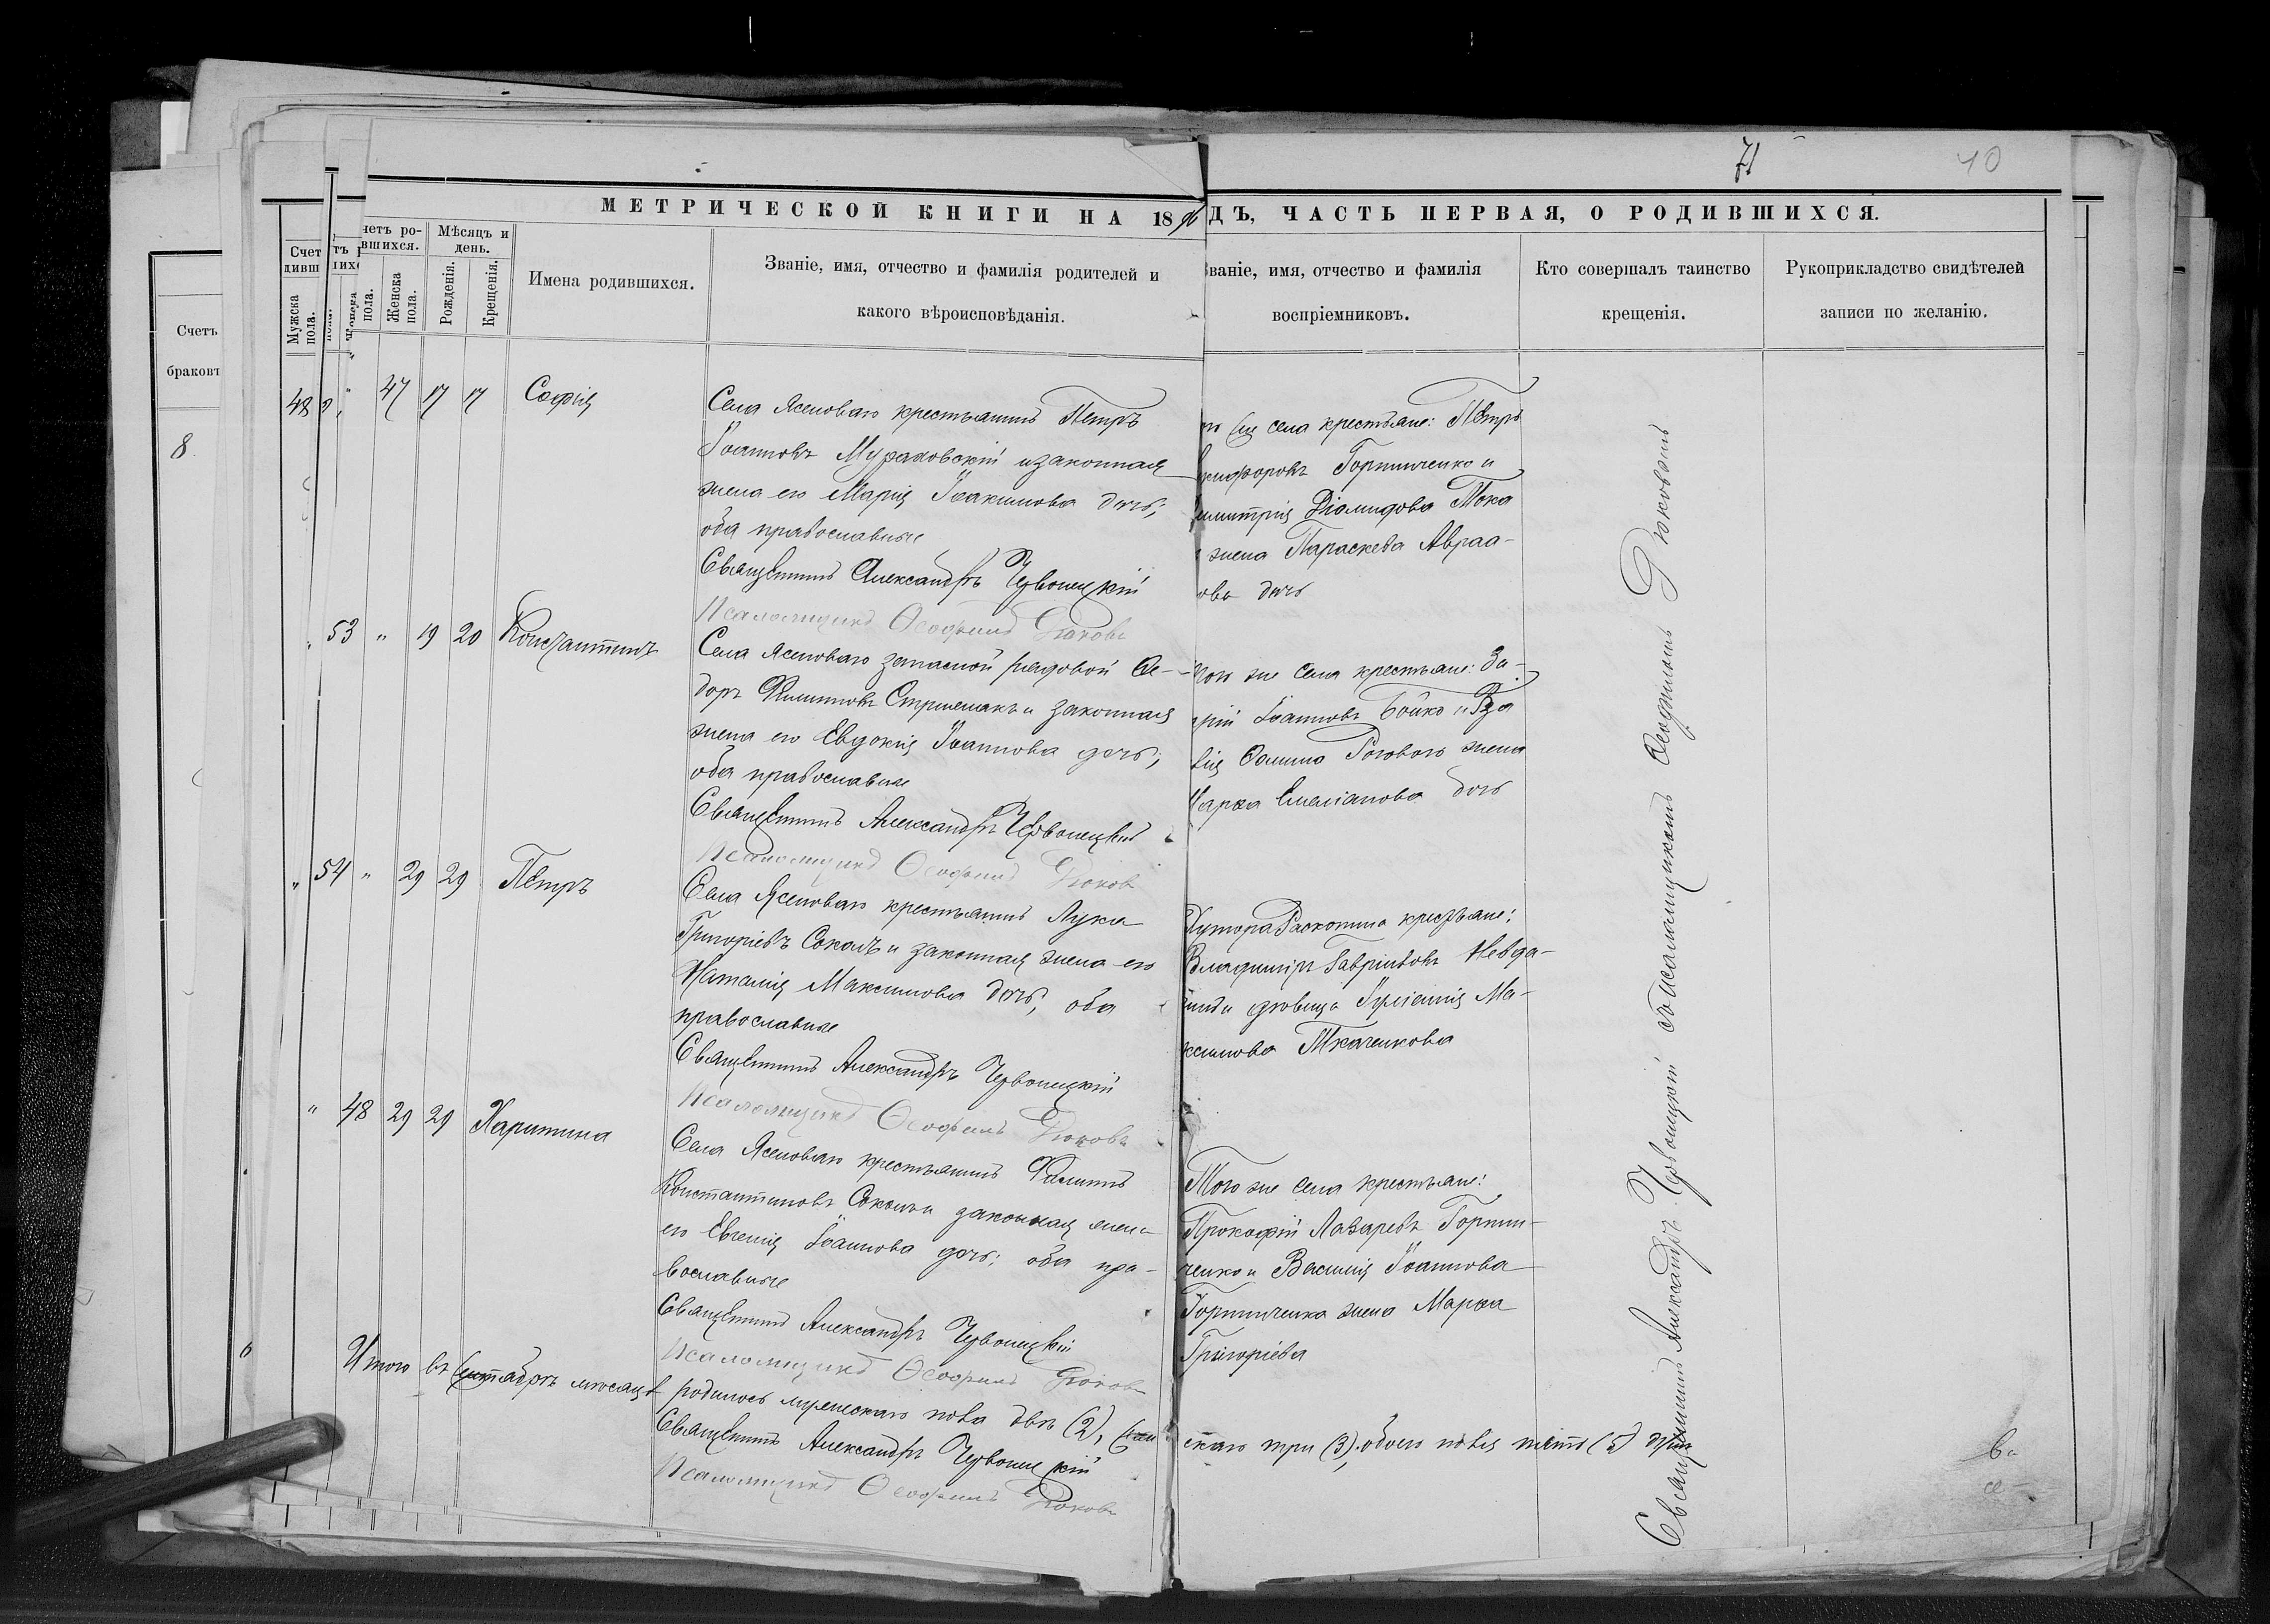 71
10
МЕТРИЧЕСКОЙ КНИГИ НА 18
ДЪ, ЧАСТЬ ПЕРВАЯ, О РОДИВШИХСЯ.
Счетъ
браковъ
8
Счет
дивш
Мужска
пола.
48
четъ ро-
вшихся.
Женска
пола.
Мѣсяцъ и
день.
Рожденія.
Крещенія.
Имена родившихся.
Званіе, имя, отчество и фамилія родителей и
какого вѣроисповѣданія.
Званіе, имя, отчество и фамилія
воспріемниковъ.
Кто совершалъ таинство
крещенія.
Рукоприкладство свидѣтелей
записи по желанію.
47 17 17 Софія
Села Ясеноваго крестьянинъ Петръ
Іоанновъ Мураховскій и законная
жена его Марія Іоакимова дочь;
оба православные
Священникъ Александръ Червонецкій
Псаломщикъ Ѳеофилъ Дюковъ
же села крестьяне: Петръ
Никифоровъ Горпинченко и
Димитрія Діомидова
жена Параскева Авраа-
ова дочь
" 53 " 19 20 Константинъ
Села Ясеноваго запасной рядовой Ѳе-
доръ Филипповъ и законная
жена его Евдокія Іоаннова дочь;
оба православные
Священникъ Александръ Червонецкій
Псаломщикъ Ѳеофилъ Дюковъ
того же села крестьяне: За-
рій Іоанновъ Бойко и
Рогового жена
Марѳа Емеліанова дочь
" 54 " 29 29 Петръ
Села Ясеноваго крестьянинъ Лука
Григоріевъ Сокалъ и законная жена его
Наталія Максимова дочь, оба
православные
Священникъ Александръ Червонецкій
Псаломщикъ Ѳеофилъ Дюковъ
Хутора Раскопина крестьяне:
Владиміръ Гавріиловъ Невда-
дѣвица Іуліанія Ма-
ксимова Ткаченкова
" 48 29 29 Харитина
Села Ясеноваго крестьянинъ Филиппъ
Константиновъ Сокалъ и законная жена
его Евгенія Іоаннова дочь; оба пра-
вославные
Священникъ Александръ Червонецкій
Псаломщикъ Ѳеофилъ Дюковъ
Того же села крестьяне:
Прокофій Лазаревъ Горпин-
ченко и Василія Іоаннова
Горпинченка жена Марѳа
Григоріева
Итого въ Сентябрѣ мѣсяцѣ родилось мужескаго пола двѣ (2), жен скаго три (3), обоего пола пять (5) душъ
Священникъ Александръ Червонецкій
Псаломщикъ Ѳеофилъ Дюковъ
Священникъ Александръ Червонецкій съ псаломщикомъ Ѳеофиломъ Дюковымъ